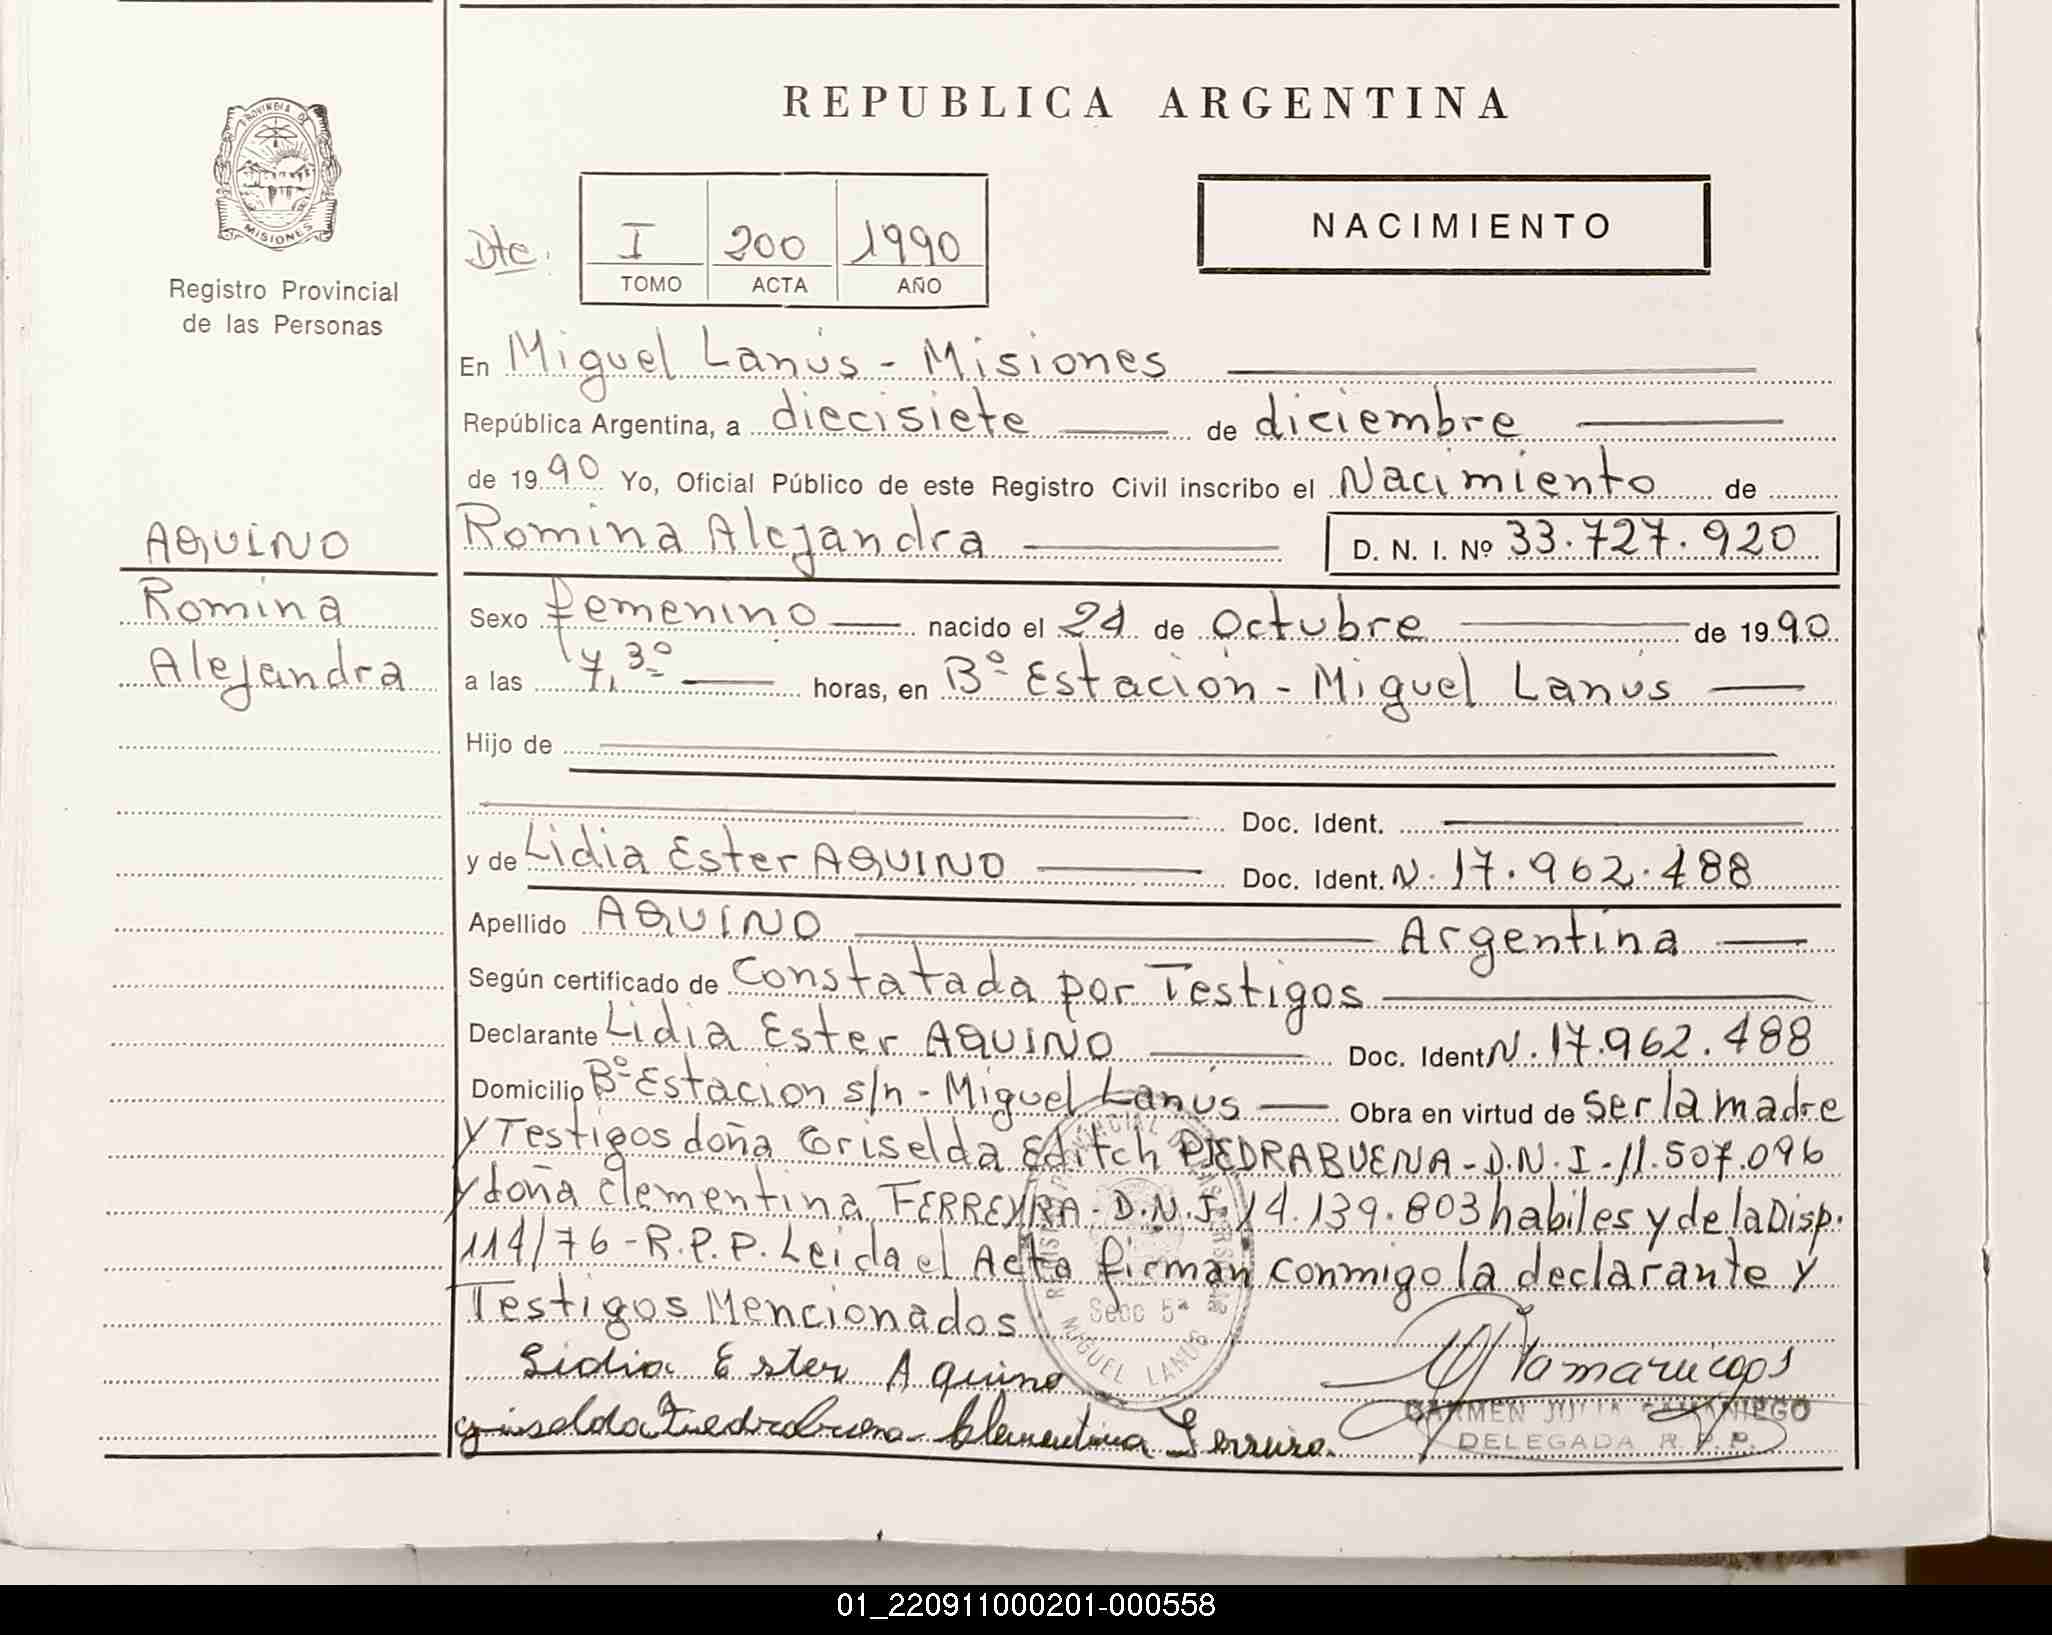 REPUBLICA ARGENTINA
PROVINCIA DE
MISIONES
Registro Provincial
de las Personas
NACIMIENTO
Dtc.
I 200 1990
TOMO ACTA AÑO
En Miguel Lanús - Misiones
República Argentina, a diecisiete de diciembre
de 1990 Yo, Oficial Público de este Registro Civil inscribo el Nacimiento de
AQUINO
Romina Alejandra D. N. I. Nº 33.727.920
Romina
Alejandra
Sexo femenino nacido el 21 de Octubre de 1990
a las 7,3º horas, en Bº Estación - Miguel Lanús
Hijo de
Doc. Ident.
y de Lidia Ester AQUINO Doc. Ident. N. 17.962.488
Apellido AQUINO Argentina
Según certificado de Constatada por Testigos
Declarante Lidia Ester AQUINO Doc. Ident N. 17.962.488
Domicilio Bº Estacion s/n - Miguel Lanús Obra en virtud de ser la madre
y Testigos doña Griselda Editch PIEDRABUENA - D.N.I - 11.507.096
y doña Clementina FERREYRA - D.N.I. 14.139.803 habiles y de la Disp.
114/76 - R.P.P. Leida el Acta firman conmigo la declarante y
Testigos Mencionados
Secc 5ª
MIGUEL LANUS
Lidia Ester Aquino
Griselda Piedrabuena Clementina Ferreira
CARMEN JULIA SAMANIEGO
DELEGADA R.P.P.
01_220911000201-000558